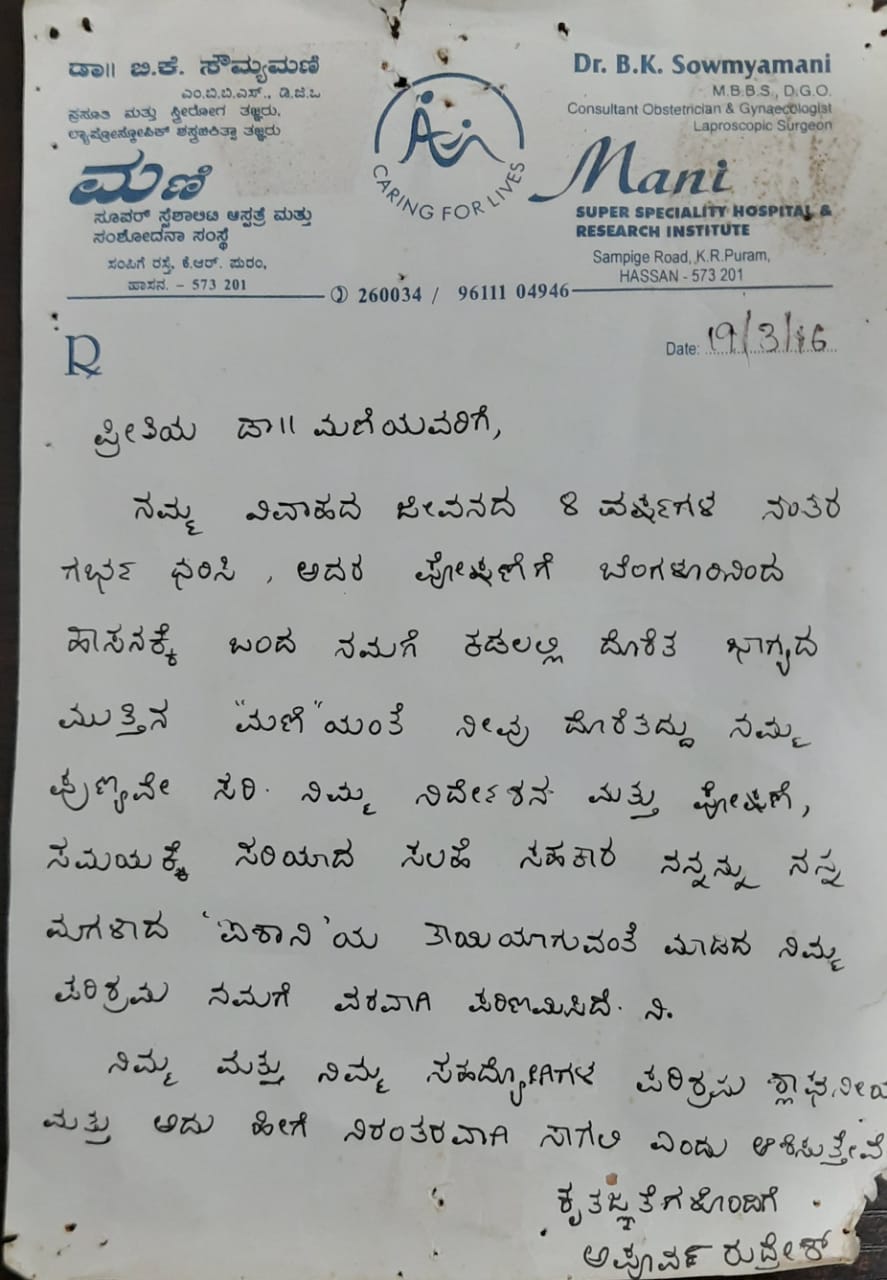 ಡಾ॥ ಬಿ.ಕೆ. ಸೌಮ್ಯಮಣಿ
ಎಂ.ಬಿ.ಬಿ.ಎಸ್., ಡಿ.ಜಿ.ಒ
ಪ್ರಸೂತಿ ಮತ್ತು ಸ್ತ್ರೀರೋಗ ತಜ್ಞರು,
ಲ್ಯಾಪ್ರೋಸ್ಕೋಪಿಕ್ ಶಸ್ತ್ರಚಿಕಿತ್ಸಾ ತಜ್ಞರು
ಮಣಿ
ಸೂಪರ್ ಸ್ಪೆಶಾಲಿಟಿ ಆಸ್ಪತ್ರೆ ಮತ್ತು
ಸಂಶೋದನಾ ಸಂಸ್ಥೆ
ಸಂಪಿಗೆ ರಸ್ತೆ, ಕೆ.ಆರ್. ಪುರಂ,
ಹಾಸನ. - 573 201
CARING FOR LIVES
Dr. B.K. Sowmyamani
M.B.B.S., D.G.O.
Consultant Obstetrician & Gynaecologist
Laproscopic Surgeon
Mani
SUPER SPECIALITY HOSPITAL &
RESEARCH INSTITUTE
Sampige Road, K.R.Puram,
HASSAN - 573 201
260034 / 96111 04946
℞
Date: 19/3/16
ಪ್ರೀತಿಯ ಡಾ॥ ಮಣಿಯವರಿಗೆ,
ನಮ್ಮ ವಿವಾಹದ ಜೀವನದ 8 ವರ್ಷಗಳ ನಂತರ
ಗರ್ಭ ಧರಿಸಿ, ಅದರ ಪೋಷಣೆಗೆ ಬೆಂಗಳೂರಿನಿಂದ
ಹಾಸನಕ್ಕೆ ಬಂದ ನಮಗೆ ಕಡಲಲ್ಲಿ ದೊರೆತ ಭಾಗ್ಯದ
ಮುತ್ತಿನ "ಮಣಿ"ಯಂತೆ ನೀವು ದೊರೆತದ್ದು ನಮ್ಮ
ಪುಣ್ಯವೇ ಸರಿ. ನಿಮ್ಮ ನಿರ್ದೇಶನ ಮತ್ತು ಪೋಷಣೆ,
ಸಮಯಕ್ಕೆ ಸರಿಯಾದ ಸಲಹೆ ಸಹಕಾರ ನನ್ನನ್ನು ನನ್ನ
ಮಗಳಾದ 'ಐಶಾನಿ'ಯ ತಾಯಿಯಾಗುವಂತೆ ಮಾಡಿದ ನಿಮ್ಮ
ಪರಿಶ್ರಮ ನಮಗೆ ವರವಾಗಿ ಪರಿಣಮಿಸಿದೆ. ನಿ.
ನಿಮ್ಮ ಮತ್ತು ನಿಮ್ಮ ಸಹದ್ಯೋಗಿಗಳ ಪರಿಶ್ರಮ ಶ್ಲಾಘನೀಯ
ಮತ್ತು ಅದು ಹೀಗೆ ನಿರಂತರವಾಗಿ ಸಾಗಲಿ ಎಂದು ಆಶಿಸುತ್ತೇವೆ
ಕೃತಜ್ಞತೆಗಳೊಂದಿಗೆ
ಅಪೂರ್ವ ರುದ್ರೇಶ್